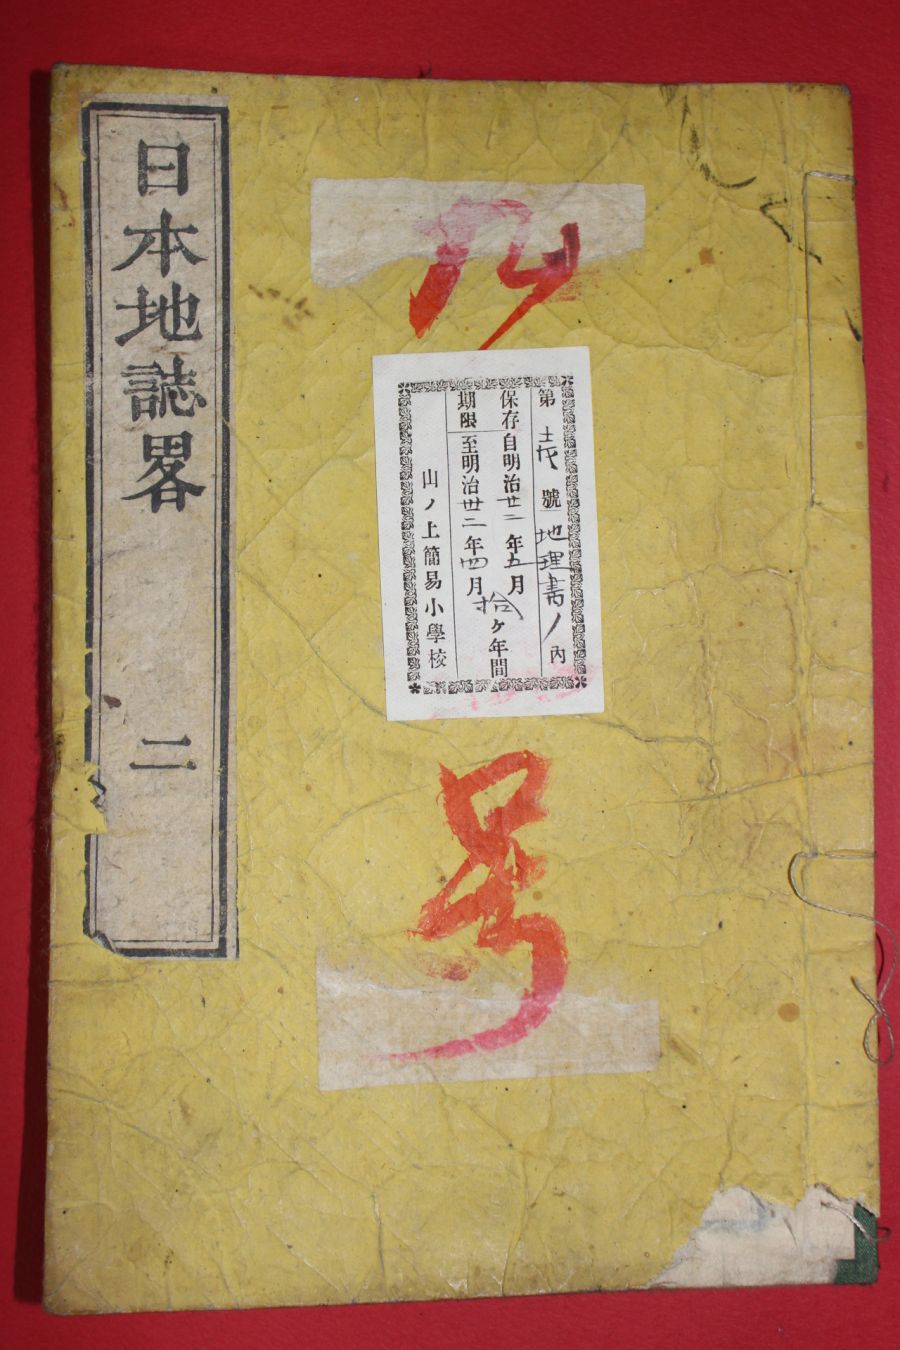 日本地誌畧 二
号
第 號 地理書ノ内
保存 自明治廿二年五月
期限 至明治卅二年四月 拾ヶ年間
山ノ上簡易小學校